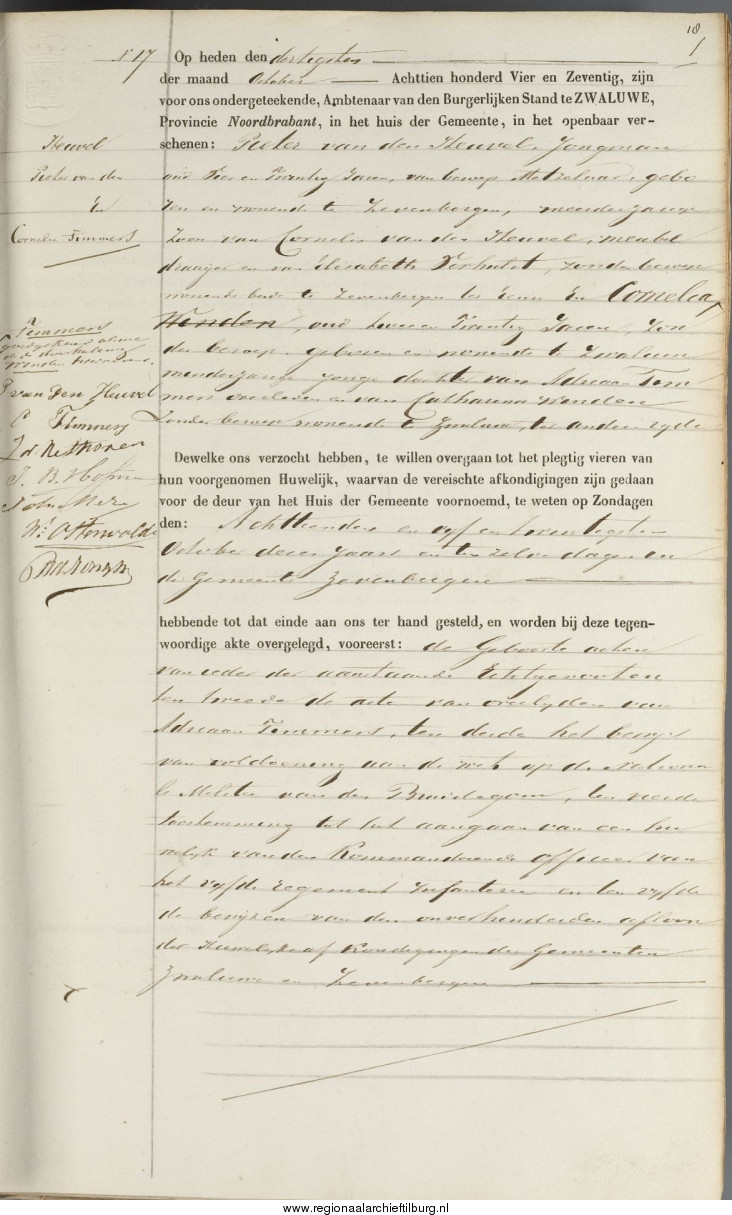 18
N 17
Op heden den dertigsten
der maand October Achttien honderd Vier en Zeventig, zijn
voor ons ondergeteekende, Ambtenaar van den Burgerlijken Stand te ZWALUWE,
Provincie Noordbrabant, in het huis der Gemeente, in het openbaar ver-
schenen: Pieter van den Heuvel, Jongman
oud Vier en Twintig Jaren, van beroep Metzelaar, gebo
ren en wonende te Zevenbergen, meerderjarige
Zoon van Cornelis van den Heuvel, meubel
draaijer en van Elisabeth Verhulst, zonder beroep
wonende beide te Zevenbergen ter eenre En Cornelia
Winden, oud twee en Twintig Jaren, Zon
der beroep, geboren en wonende te Zwaluwe
minderjarige jonge dochter van Adriaan Tim
mers overleden en van Catharina Winden
Zonder beroep wonende te Zwaluwe, ter andere zyde
Heuvel
Pieter van den
En
Cornelia Timmers
Timmers
goedgekeurd alsmede
de doorhaling
Winden
P van Den Heuvel
C Timmers
J. B.
W. Ostenwald
Dewelke ons verzocht hebben, te willen overgaan tot het plegtig vieren van
hun voorgenomen Huwelijk, waarvan de vereischte afkondigingen zijn gedaan
voor de deur van het Huis der Gemeente voornoemd, te weten op Zondagen
den: Achttienden en vyf en twintigsten
October dezes Jaars en ten zelve dagen in
de Gemeente Zevenbergen
hebbende tot dat einde aan ons ter hand gesteld, en worden bij deze tegen-
woordige akte overgelegd, vooreerst: de Geboorte acten
van ieder der aanstaande Echtgenooten
ten tweede de acte van overlyden van
Adriaan Timmers, ten derde het bewys
van voldoening aan de wet op de Nationa
le Militie van den Bruidegom, ten vierde
toestemming tot het aangaan van een hu
welyk van den Kommanderende Officier van
het vyfde regement Infanterie en ten vyfde
de bewyzen van den onverhinderden afloop
der Huwelyks af kondigingen der Gemeenten
Zwaluwe en Zevenbergen
www.regionaalarchieftilburg.nl